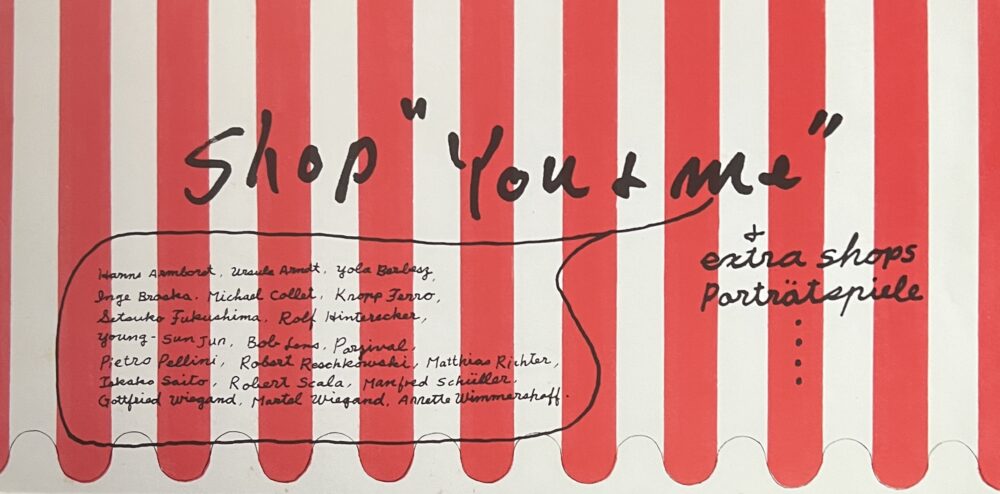 Shop "You & me"
& 
extra shops
Porträtspiele
Hanns Armborst, Ursula Arndt, Yola Berbesz,
Inge Broska, Michael Collet, Knopp Ferro,
Setsuko Fukushima, Rolf Hinterecker,
Young-Sun Jun, Bob Lens, Parzival,
Pietro Pellini, Robert Reschkowski, Matthias Richter,
Takako Saito, Robert Scala, Manfred Schüller,
Gottfried Wiegand, Martel Wiegand, Annette Wimmershoff.